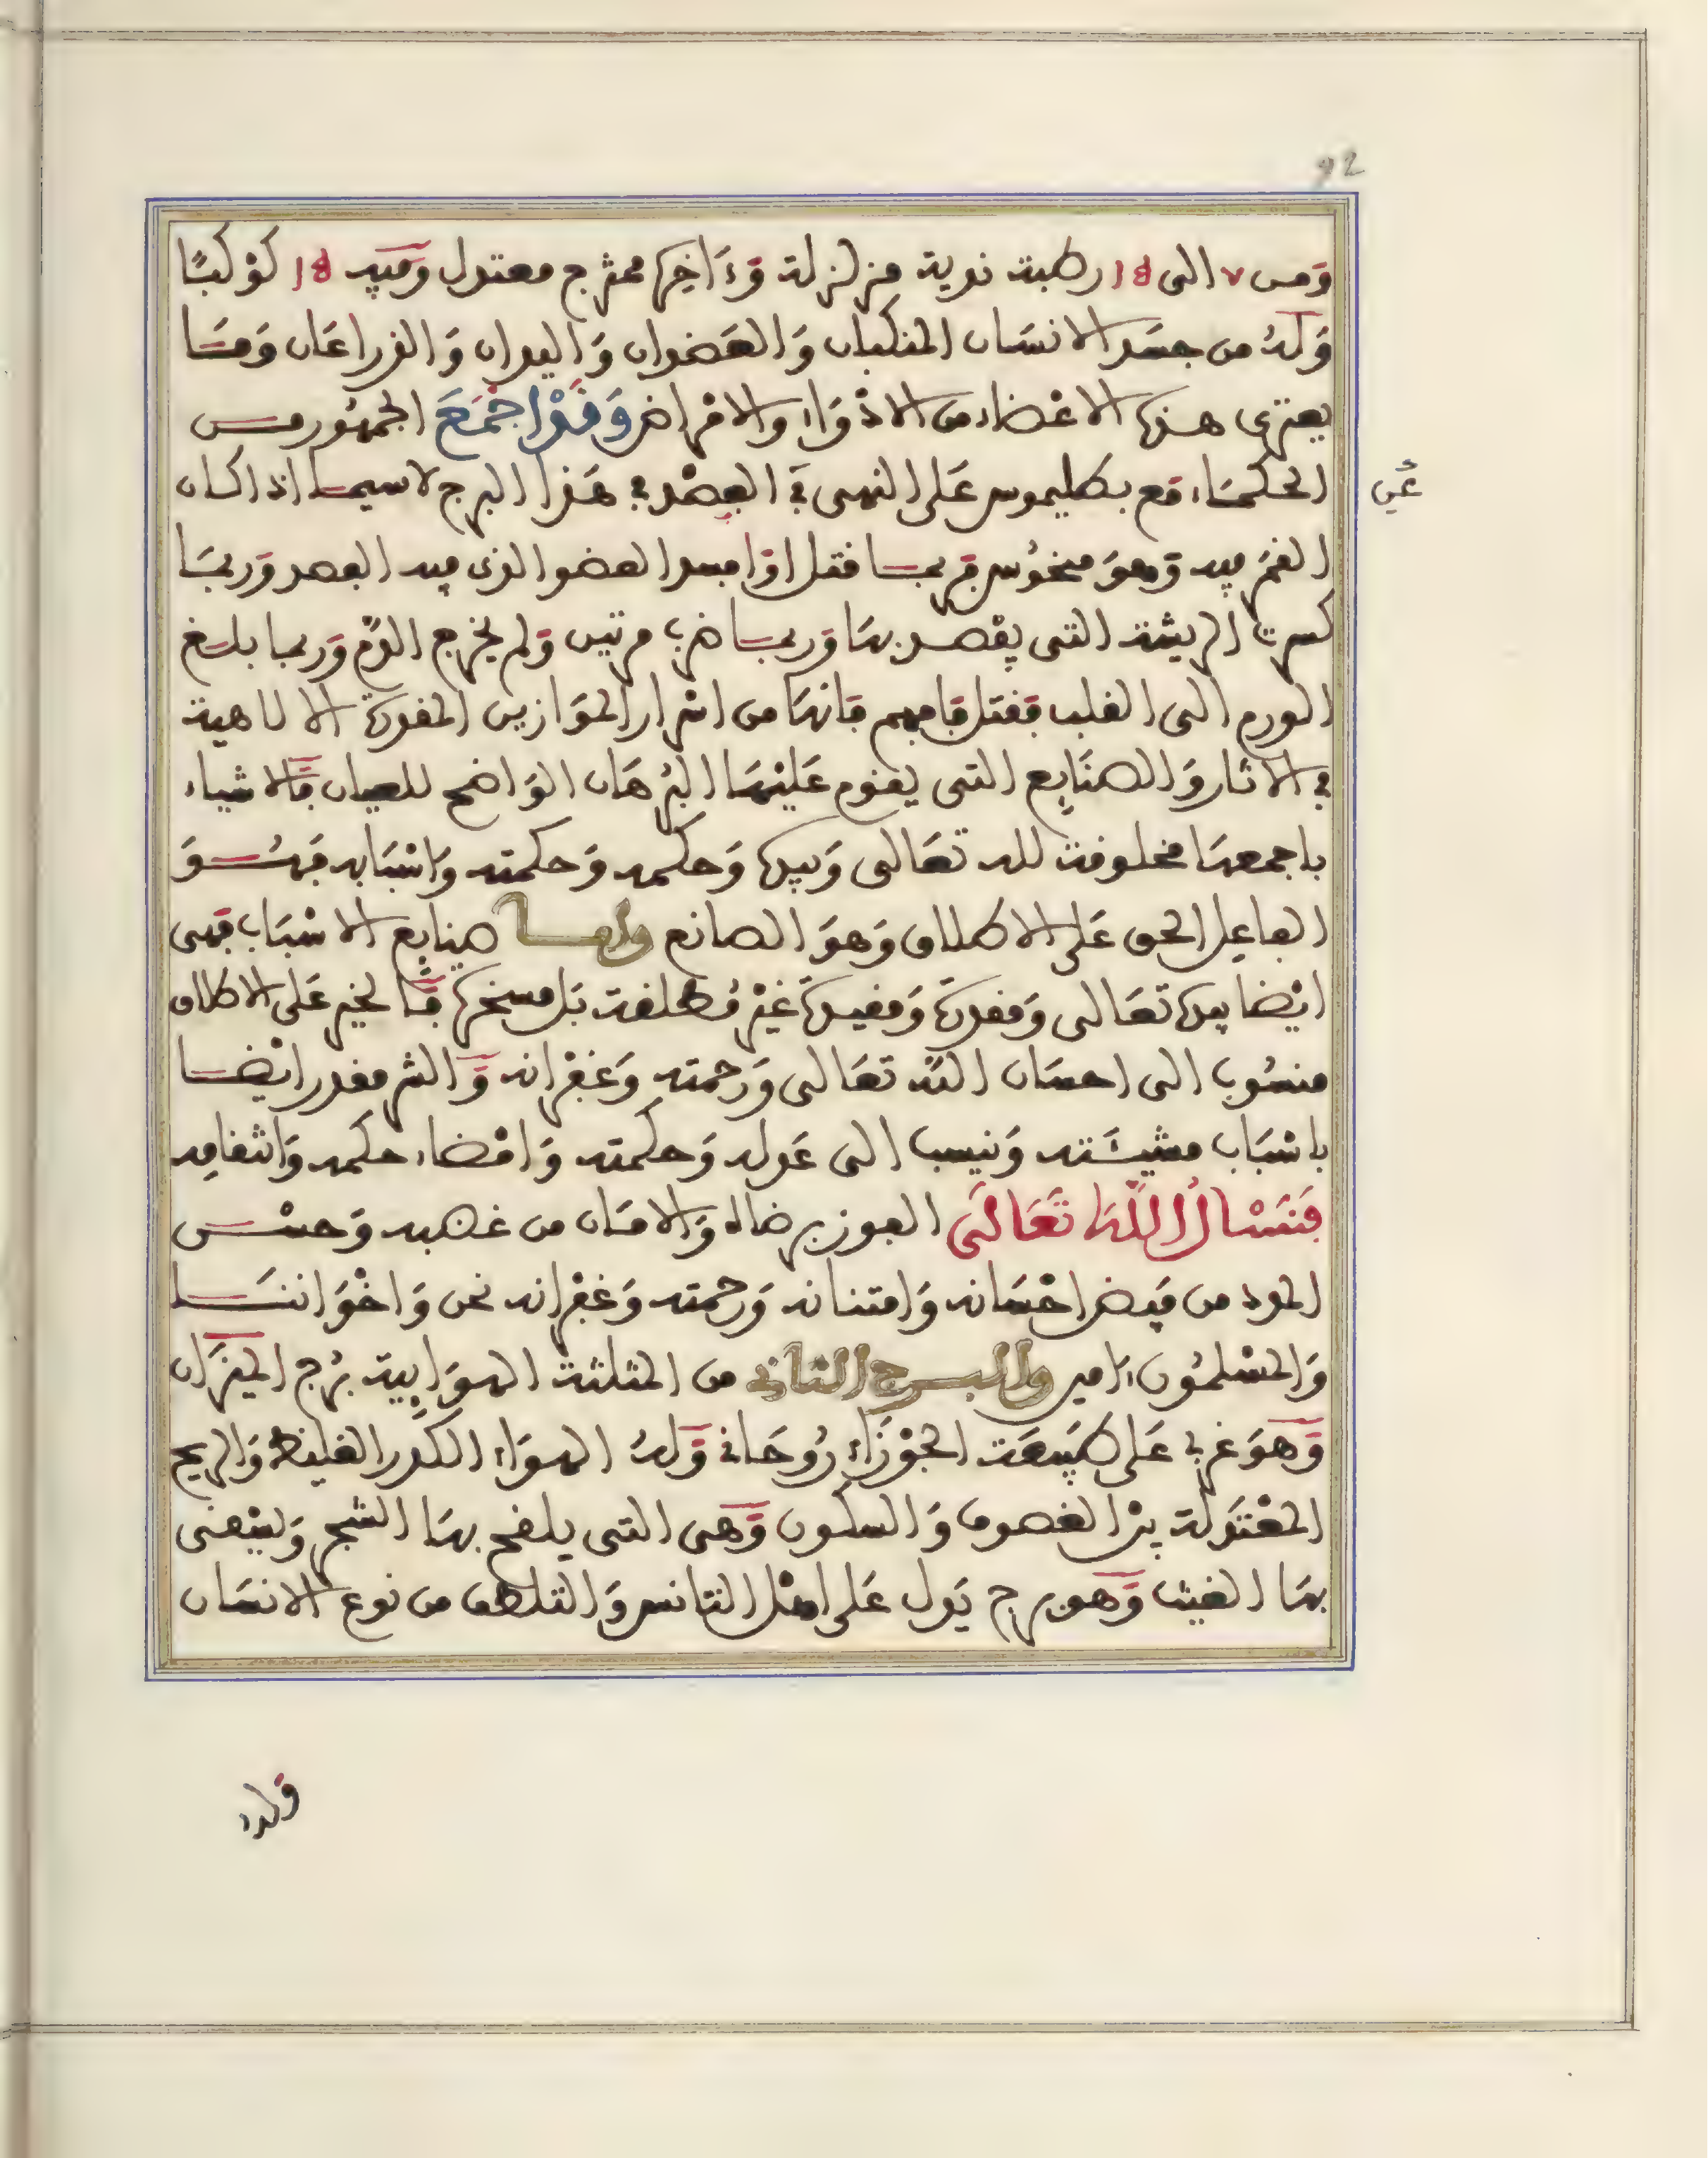 92
ومن ٧ الى 18 رطبة ندية مزلزلة وءاخرها ممتزج معتدل وفيه 18 كوكبًا
وله من جسد الانسان المنكبان والعضدان واليدان والذراعان وما
يعترى هذه الاعضاء من الادواء والامراض وقد اجمع الجمهور من
الحكماء مع بطليموس على النهى في الفصد في هذا البرج لا سيما اذا كان
عن
القمر فيه وهو منحوس فربما قتل او افسد العضو الذى فيه الفصد وربما
كسرت الريشة التى يفصد بها وربما ضرب مرتين ولم يخرج الدم وربما بلغ
الورم الى القلب فقتل فافهم فانها من اسرار الموازين المقدرة الالاهية
في الاثار والصنايع التى يقوم عليها البرهان الواضح للعيان فالاشياء
باجمعها مخلوقة لله تعالى وبيده وحكمه وحكمته واسبابه فهو
الفاعل الحق على الاطلاق وهو الصانع واما صنايع الاسباب فهى
ايضا بيده تعالى ومقدرة ومقيدة غير مطلقة بل مسخرة فالخير على الاطلاق
منسوب الى احسان الله تعالى ورحمته وغفرانه والشر مقدر ايضا
باسباب مشيئته ونسب الى عدله وحكمته وامضاء حكمه وانتقامه
فنسال الله تعالى الفوز برضاه والامان من غضبه وحسن
المدد من فيض احسانه وامتنانه ورحمته وغفرانه نحن واخواننا
والمسلمون ءامين والبرج الثاني من المثلثة الهوايية برج الميزان
وهو غربي على طبيعة الجوزاء روحاني وله الهواء الكدر الغليظ والريح
المعتدلة بين العصوف والسكون وهى التى يلقح بها الشجر وينفى
بها الغيث وهو برج يدل على اهل التانس والتلطف من نوع الانسان
وله